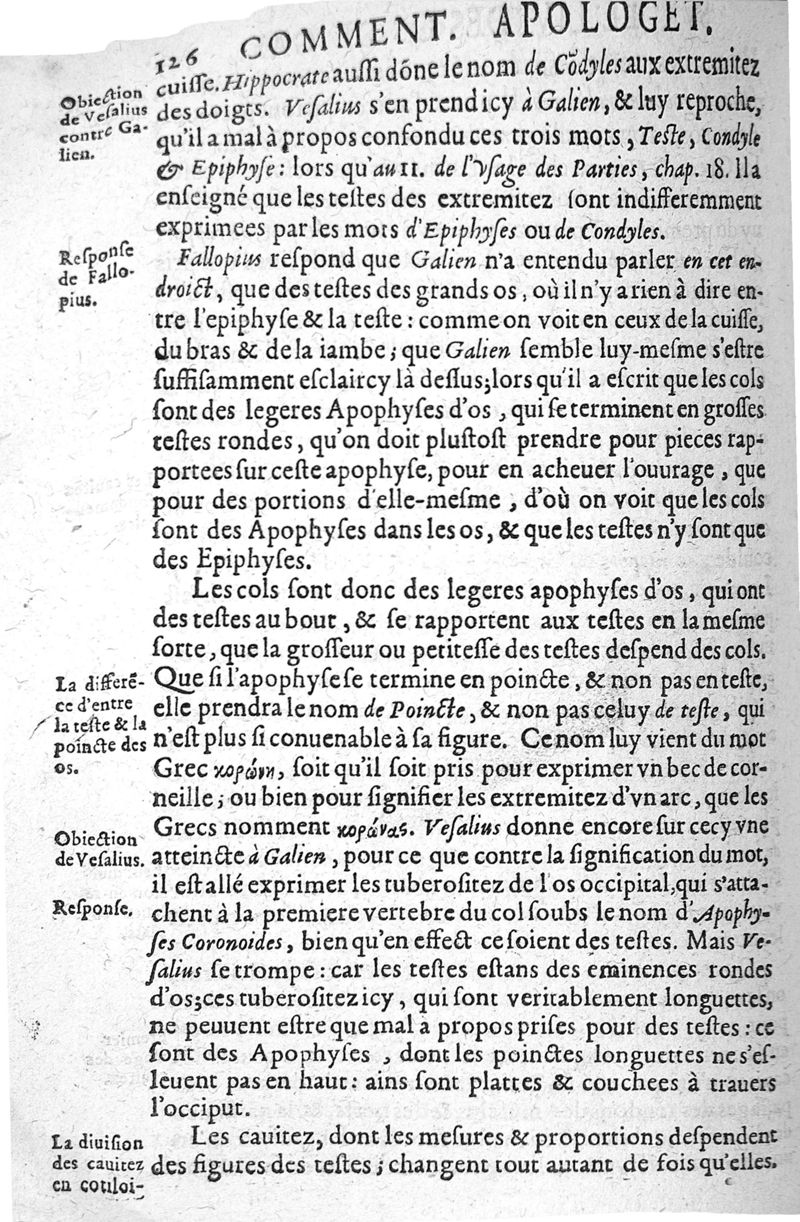 126 COMMENT. APOLOGET.
cuiſſe. Hippocrate auſſi dõne le nom de Cõdyles aux extremitez
Obiection
de Veſalius
contre Ga-
lien.
des doigts. Veſalius s'en prend icy à Galien, & luy reproche,
qu'il a mal à propos confondu ces trois mots, Teſte, Condyle
& Epiphyſe: lors qu'au II. de l'vſage des Parties, chap. 18. Il a
enſeigné que les teſtes des extremitez ſont indifferemment
exprimees par les mots d'Epiphyſes ou de Condyles.
Reſponſe
de Fallo-
pius.
Fallopius reſpond que Galien n'a entendu parler en cet en-
droict, que des teſtes des grands os, où il n'y a rien à dire en-
tre l'epiphyſe & la teſte: comme on voit en ceux de la cuiſſe,
du bras & de la iambe; que Galien ſemble luy-meſme s'eſtre
ſuffiſamment eſclaircy là deſſus; lors qu'il a eſcrit que les cols
ſont des legeres Apophyſes d'os, qui ſe terminent en groſſes
teſtes rondes, qu'on doit pluſtoſt prendre pour pieces rap-
portees ſur ceſte apophyſe, pour en acheuer l'ouurage, que
pour des portions d'elle-meſme, d'où on voit que les cols
ſont des Apophyſes dans les os, & que les teſtes n'y ſont que
des Epiphyſes.
Les cols ſont donc des legeres apophyſes d'os, qui ont
des teſtes au bout, & ſe rapportent aux teſtes en la meſme
ſorte, que la groſſeur ou petiteſſe des teſtes deſpend des cols.
La differẽ-
ce d'entre
la teſte & la
poincte des
os.
Que ſi l'apophyſe ſe termine en poincte, & non pas en teſte,
elle prendra le nom de Poincte, & non pas celuy de teſte, qui
n'eſt plus ſi conuenable à ſa figure. Ce nom luy vient du mot
Grec κορώνη, ſoit qu'il ſoit pris pour exprimer vn bec de cor-
neille; ou bien pour ſignifier les extremitez d'vn arc, que les
Grecs nomment κοράνας. Veſalius donne encore ſur cecy vne
Obiection
de Veſalius.
atteincte à Galien, pour ce que contre la ſignification du mot,
il eſt allé exprimer les tuberoſitez de l'os occipital, qui s'atta-
Reſponſe.
chent à la premiere vertebre du col ſoubs le nom d'Apophy-
ſes Coronoides, bien qu'en effect ce ſoient des teſtes. Mais Ve-
ſalius ſe trompe: car les teſtes eſtans des eminences rondes
d'os; ces tuberoſitez icy, qui ſont veritablement longuettes,
ne peuuent eſtre que mal à propos priſes pour des teſtes: ce
ſont des Apophyſes, dont les poinctes longuettes ne s'eſ-
leuent pas en haut: ains ſont plattes & couchees à trauers
l'occiput.
La diuiſion
des cauitez
en cotiloi-
Les cauitez, dont les meſures & proportions deſpendent
des figures des teſtes; changent tout autant de fois qu'elles.